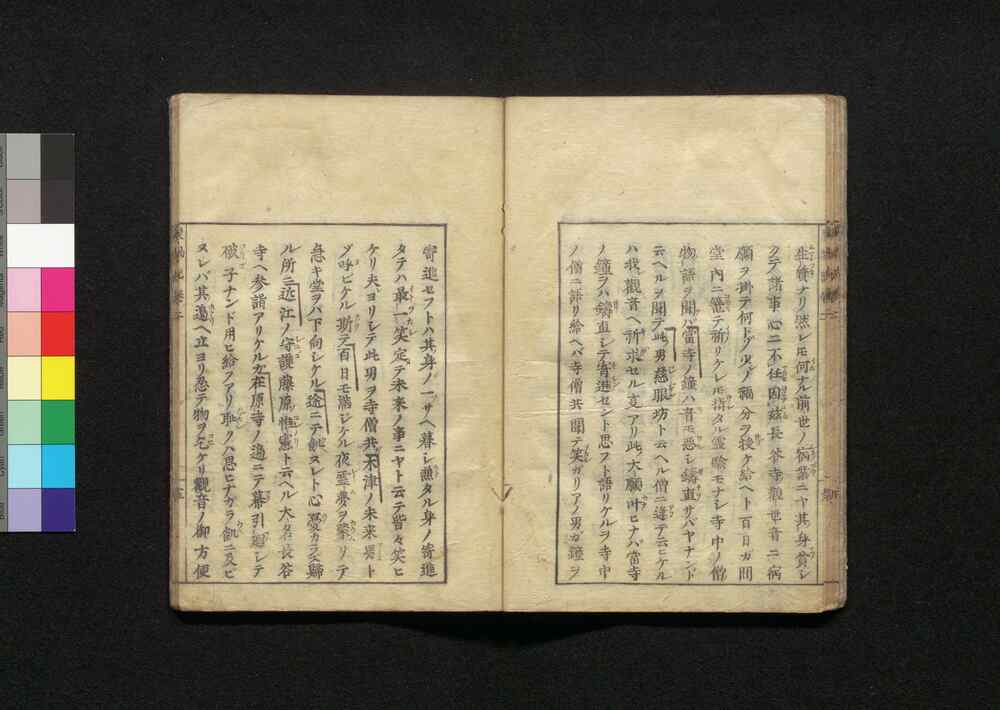 生質ナリ然レモ何ナル前世ノ病業ニヤ其身貧シ
クテ諸事心ニ不任因茲長谷寺觀世音ニ病
願ヲ掛テ何トゾ少ノ福分ヲ授ケ給ヘト百日ガ間
堂内ニ篭テ祈リケレモ指タル霊驗モナシ寺中ノ僧
物語ヲ聞バ當寺ノ鐘ハ音モ悪シ鑄直サバヤナンド
云ヘルヲ聞テ此男慈眼坊ト云ヘル僧ニ逢テ云ヒケル
ハ我觀音ヘ祈求セル支アリ此大願叶ヒナバ當寺
ノ鐘ヲハ鑄直シテ寄進セント思フト語リケルヲ寺中
ノ僧ニ語リ給ヘバ寺僧共聞テ笑ガリアノ男ガ鐘ヲ
寄進セフトハ其身ノ一サヘ暮シ兼タル身ノ寄進
タテハ最一笑定テ未来ノ事ニヤト云テ皆々笑ヒ
ケリ夫ヨリシテ此男ヲ寺僧共木津ノ未来男ト
ゾ呼ビケル斯テ百日モ満シケル夜霊夢ヲ蒙リテ
急キ堂ヲハ下向シケル途ニテ飢スレト心憂カラス歸
ル所ニ近江ノ守護藤原惟憲ト云ヘル大名長谷
寺ヘ参詣アリケルガ在原寺ノ邉ニテ幕引廻シテ
破子ナンド用ヒ給フアリ耻クハ思ヒナガラ飢ニ及ヒ
ヌレバ其邉ヘ立ヨリ忍テ物ヲ乞ケリ觀音ノ御方便